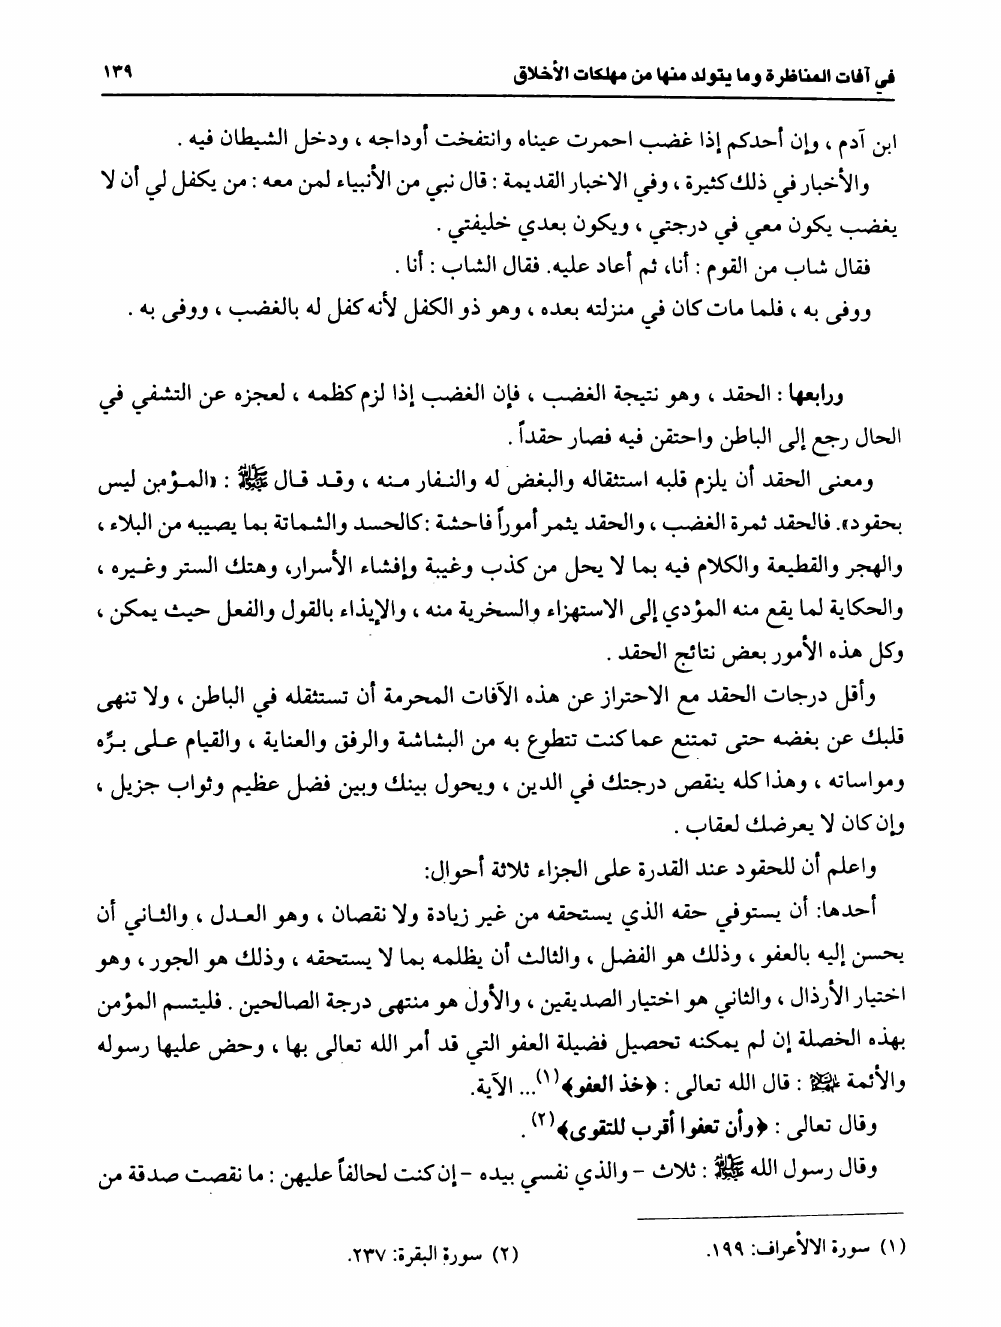 في آفات المناظرة وما يتولد منها من مهلكات الأخلاق ١٣٩
ابن آدم ، وإن أحدكم إذا غضب احمرت عيناه وانتفخت أوداجه ، ودخل الشيطان فيه .
والأخبار في ذلك كثيرة ، وفي الاخبار القديمة : قال نبي من الأنبياء لمن معه : من يكفل لي أن لا
يغضب يكون معي في درجتي ، ويكون بعدي خليفتي .
فقال شاب من القوم : أنا، ثم أعاد عليه. فقال الشاب : أنا .
ووفى به ، فلما مات كان في منزلته بعده ، وهو ذو الكفل لأنه كفل له بالغضب ، ووفى به .
ورابعها : الحقد ، وهو نتيجة الغضب ، فإن الغضب إذا لزم كظمه ، لعجزه عن التشفي في
الحال رجع إلى الباطن واحتقن فيه فصار حقداً .
ومعنى الحقد أن يلزم قلبه استثقاله والبغض له والنفار منه ، وقد قال ﷺ : «المؤمن ليس
بحقود». فالحقد ثمرة الغضب ، والحقد يثمر أموراً فاحشة :كالحسد والشماتة بما يصيبه من البلاء ،
والهجر والقطيعة والكلام فيه بما لا يحل من كذب وغيبة وإفشاء الأسرار، وهتك الستر وغيره ،
والحكاية لما يقع منه المؤدي إلى الاستهزاء والسخرية منه ، والإيذاء بالقول والفعل حيث يمكن ،
وكل هذه الأمور بعض نتائج الحقد .
وأقل درجات الحقد مع الاحتراز عن هذه الآفات المحرمة أن تستثقله في الباطن ، ولا تنهى
قلبك عن بغضه حتى تمتنع عما كنت تتطوع به من البشاشة والرفق والعناية ، والقيام على برّه
ومواساته ، وهذا كله ينقص درجتك في الدين ، ويحول بينك وبين فضل عظيم وثواب جزيل ،
وإن كان لا يعرضك لعقاب .
واعلم أن للحقود عند القدرة على الجزاء ثلاثة أحوال:
أحدها: أن يستوفي حقه الذي يستحقه من غير زيادة ولا نقصان ، وهو العدل ، والثاني أن
يحسن إليه بالعفو ، وذلك هو الفضل ، والثالث أن يظلمه بما لا يستحقه ، وذلك هو الجور ، وهو
اختيار الأرذال ، والثاني هو اختيار الصديقين ، والأول هو منتهى درجة الصالحين . فليتسم المؤمن
بهذه الخصلة إن لم يمكنه تحصيل فضيلة العفو التي قد أمر الله تعالى بها ، وحض عليها رسوله
والأئمة عليهم السلام : قال الله تعالى : ﴿خذ العفو﴾(١)... الآية.
وقال تعالى : ﴿وأن تعفوا أقرب للتقوى﴾(٢) .
وقال رسول الله ﷺ : ثلاث - والذي نفسي بيده - إن كنت لحالفاً عليهن : ما نقصت صدقة من
(١) سورة الالأعراف: ١٩٩. (٢) سورة البقرة: ٢٣٧.